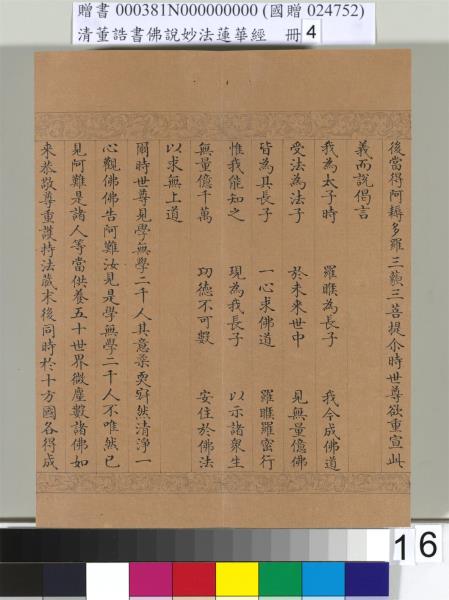 贈書 000381N000000000 (國贈 024752)
清董誥書佛說妙法蓮華經 冊 4
後當得阿耨多羅三藐三菩提尒時世尊欲重宣此
義而說偈言
我為太子時 羅睺為長子 我今成佛道
受法為法子 於未來世中 見無量億佛
皆為其長子 一心求佛道 羅睺羅密行
惟我能知之 現為我長子 以示諸衆生
無量億千萬 功德不可數 安住於佛法
以求無上道
爾時世尊見學無學二千人其意柔耎寂然清淨一
心觀佛佛告阿難汝見是學無學二千人不唯然已
見阿難是諸人等當供養五十世界微塵數諸佛如
來恭敬尊重護持法藏末後同時於十方國各得成
16